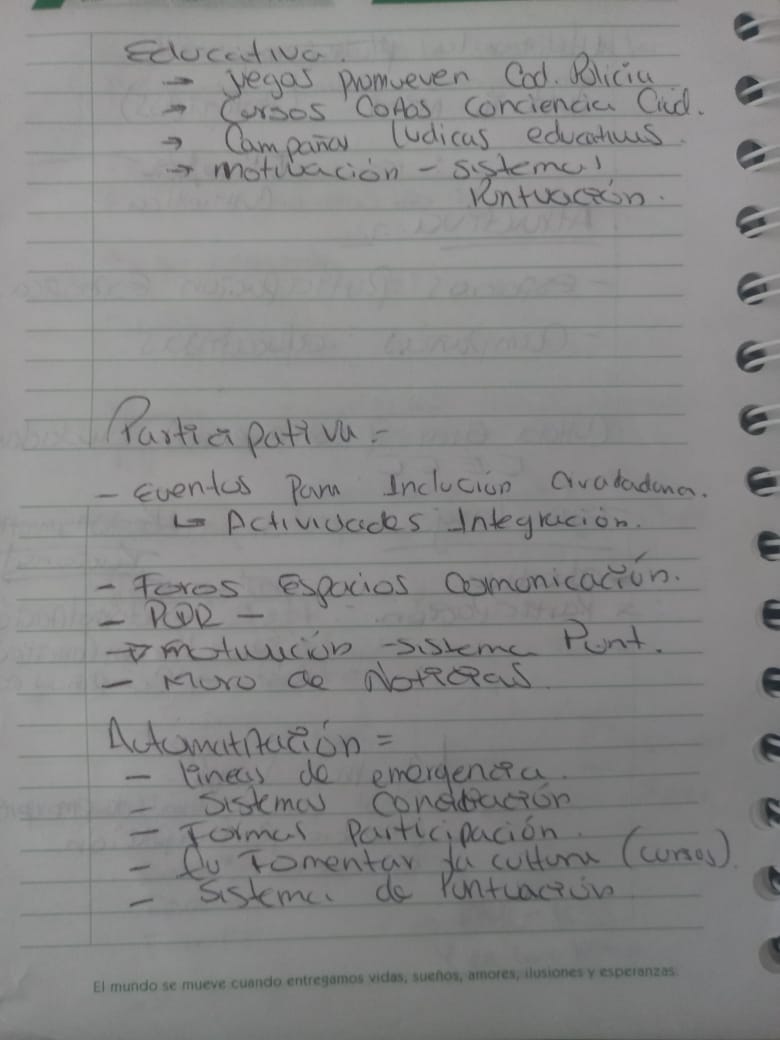 Educativa.
→ juegos promueven Cod. Policia
→ Cursos Cortos conciencia Ciud.
→ Campañas ludicas educativas
→ motivación - sistema
Puntuación.
Participativa =
- Eventos Para Inclución
↳ Actividades Integración.
- Foros Espacios Comonicación.
- PQR -
→ motivación - sistema Punt.
- Muro de Noticias
Automatización =
- lineas de emergencia.
- Sistemas
- Formas Participación.
- Fomentar la cultura (cursos)
- Sistema de Puntuación
El mundo se mueve cuando entregamos vidas, sueños, amores, ilusiones y esperanzas.